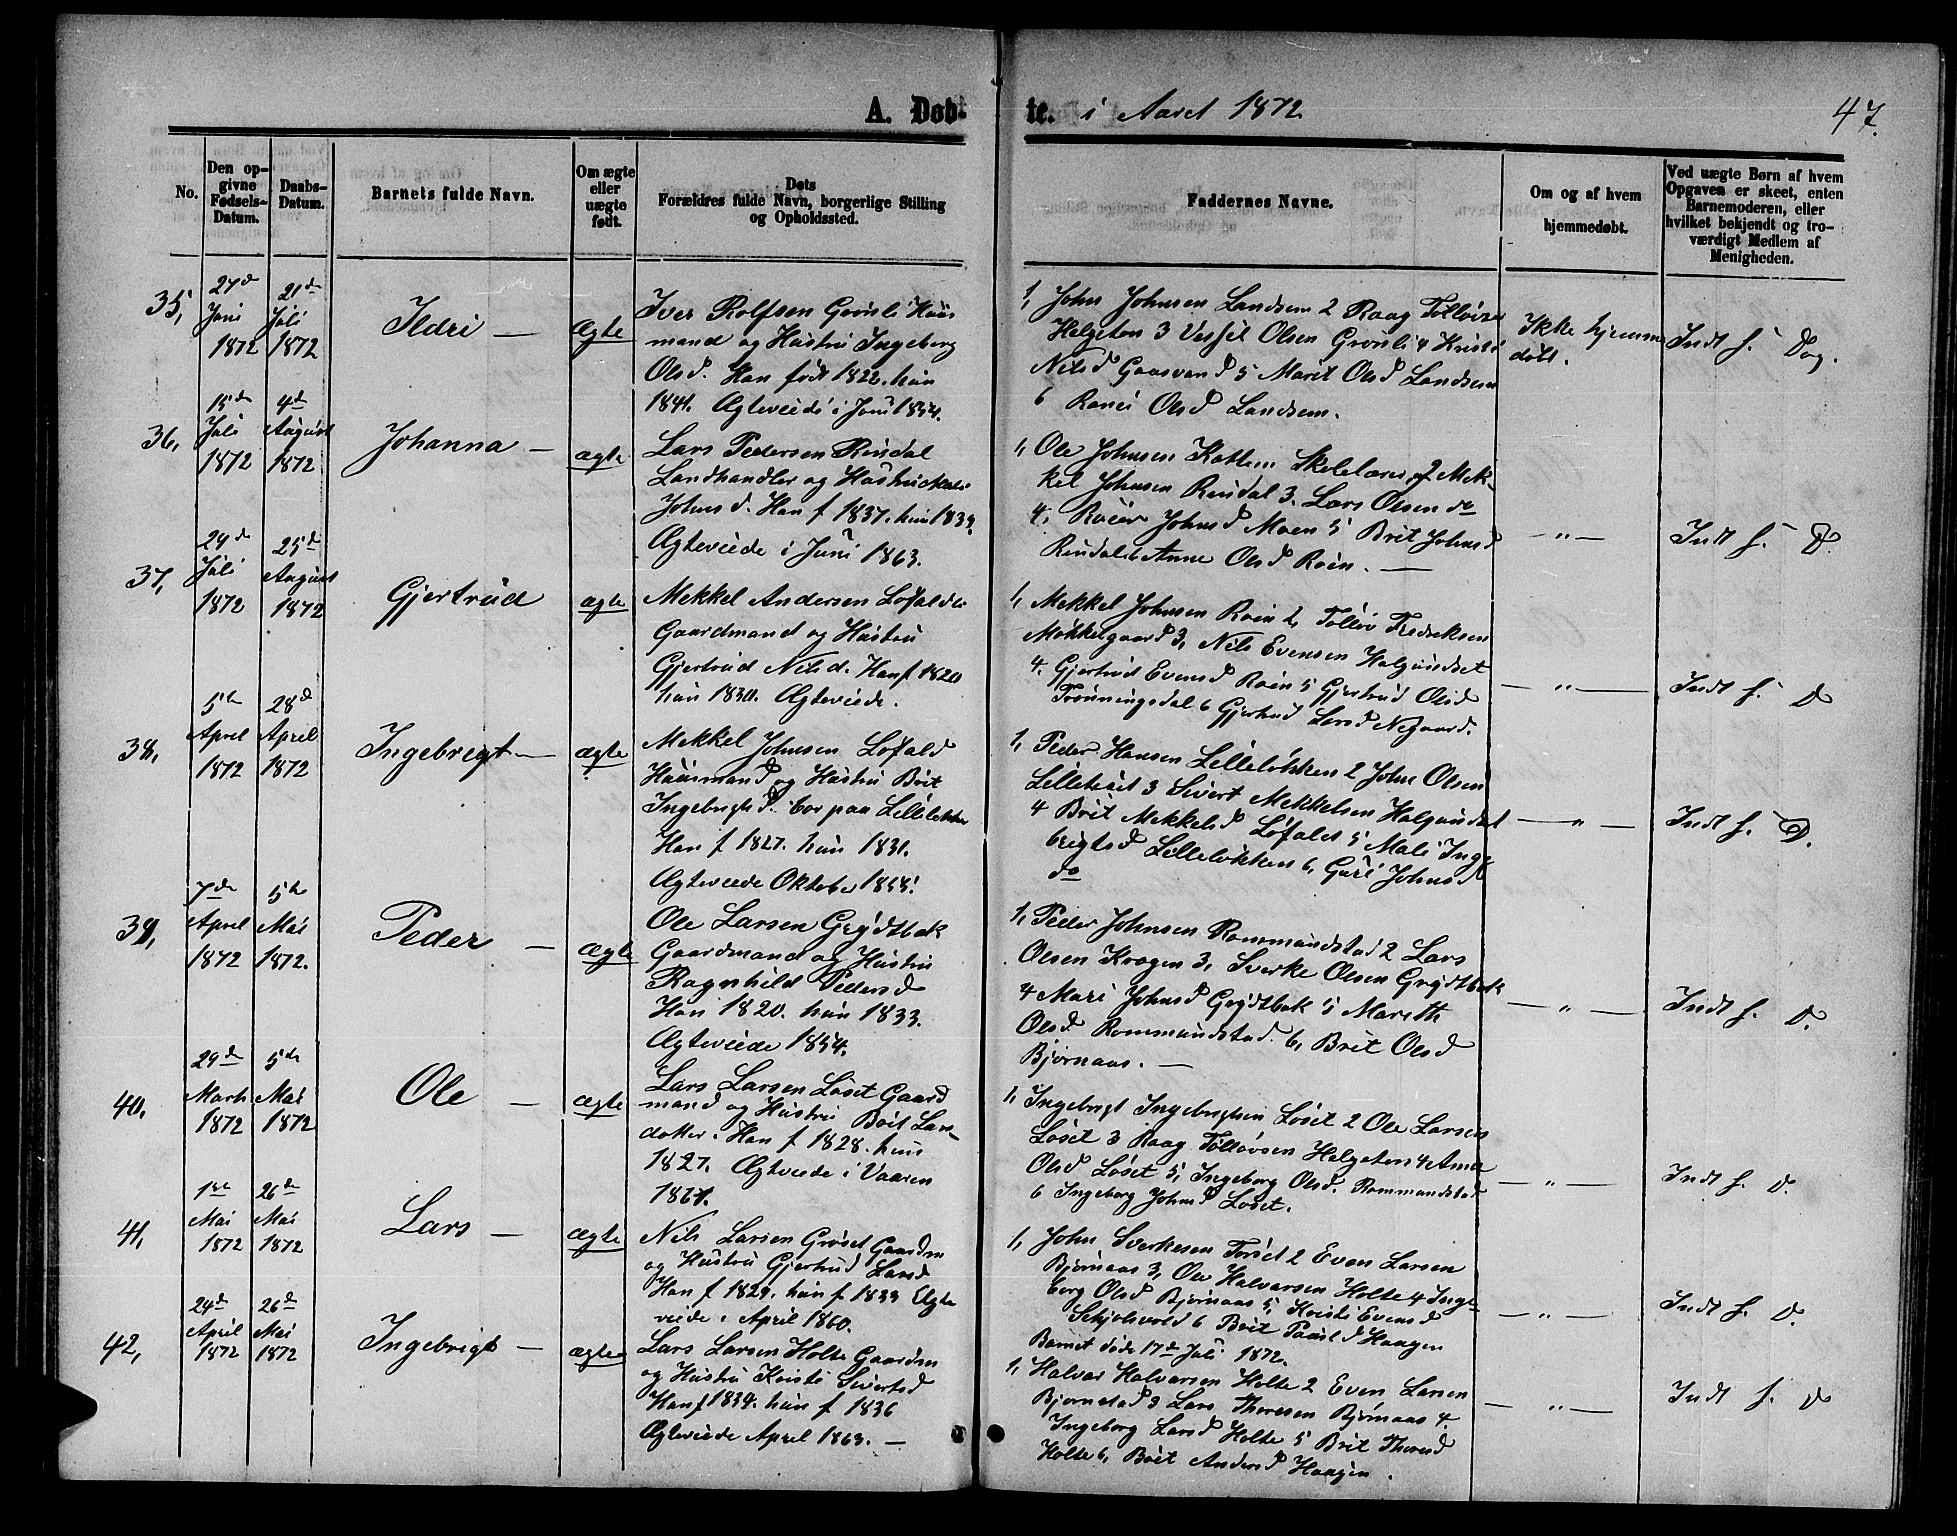 A. Døb-
te. i Aaret 1872.
47.
No.
Den op-
givne
Fødsels-
Datum.
Daabs-
Datum.
Barnets fulde Navn.
Om ægte
eller
uægte
født.
Dets
Forældres fulde Navn, borgerlige Stilling
og Opholdssted.
Faddernes Navne.
Om og af hvem
hjemmedøbt.
Ved uægte Børn af hvem
Opgaven er skeet, enten
Barnemoderen, eller
hvilket bekjendt og tro-
værdigt Medlem af
Menigheden.
35,
27de
Juni
1872
21de
Juli
1872
Ildri —
Ægte
Iver Rolfsen Grönli Huus
mand og Hustru Ingeborg
Olsd. Han født 1822. hun
1841. Ægteviede i Juni 1854.
1, John Johnsen Landsem 2 Raag Tølløvsen
Helgeton 3 Vessel Olsen Grönli 4 Kristi
Nilsd Gaasvand 5 Marit Olsd Landsem
6 Ranei Olsd Landsem.
Ikke hjemme
døbt.
Indt f. Dag.
36,
15de
Juli
1872
4de
August
1872
Johanna —
ægte
Lars Pedersen Rindal
Landhandler og Hustru Mali
Johnsd. Han f 1837. hun 1839.
Ægteviede i Juni 1863.
1, Ole Johnsen Kattem Skolelærer 2 Mek-
kel Johnsen Rindal 3. Lars Olsen do
4, Johnsd Moen 5 Brit Johnsd
Rindal 6 Anne Olsd Roen. —
— " —
Indt f. D.
37,
29de
Juli
1872
25de
August
1872
Gjertrud
ægte
Mekkel Andersen Løfaldli
Gaardmand og Hustru
Gjertrud Nilsd. Han f 1820
hun 1830. Ægteviede.
1, Mekkel Johnsen Roen 2, Tølløv Fredriksen
Møkkelgaard 3, Nils Evensen Halgundset
4, Gjertrud Evensd Roen 5 Gjertrud Olsd
Trønningsdal 6 Gjertrud Larsd Negaard.
— " —
Indt f. D
38,
5te
April
1872
28de
April
1872
Ingebregt —
ægte
Mekkel Johnsen Løfald
Huusmand og Hustru Brit
Ingebrigtsd. bor paa Lilleløkken
Han f 1827. hun 1831.
Ægteviede Oktober 1855.
1, Peder Hansen Lilleløkken 2 John Olsen
3 Sivert Mekkelsen Halgundset
4 Brit Mekkelsd Løfald 5 Mali Inge-
brigtsd Lilleløkken 6, Guri Johnsd
do
— " —
Indt f. D.
39,
7de
April
1872
5te
Mai
1872.
Peder —
ægte
Ole Larsen Grytbak
Gaardmand og Hustru
Ragnhild Pedersd
Han 1820. hun 1833.
Ægteviede 1854.
1, Peder Johnsen Rommundstad 2 Lars
Olsen Krogen 3, Sverke Olsen Grytbak
4 Mari Johnsd Grytbak 5 Mareth
Olsd Rommundstad. 6, Brit Olsd
Bjørnaas. —
— " —
Indt f. D.
40,
29de
Marts
1872
5te
Mai
1872
Ole —
ægte
Lars Larsen Løset Gaard
mand og Hustru Brit Lars-
dotter. Han f 1828. hun
1827. Ægteviede i Vaaren
1861.
1, Ingebrigt Ingebrigtsen Løset 2 Ole Larsen
Løset 3 Raag Tølløvsen Helgeton 4 Anne
Olsd Løset 5, Ingeborg Olsd. Rommundstad
6 Ingeborg Johnsd Løset.
— " —
Indt f. D.
41,
1ste
Mai
1872
26de
Mai
1872
Lars —
ægte
Nils Larsen Grøset Gaardm
og Hustru Gjertrud Larsd
Han f 1829. hun f 1839 Ægte
viede i April 1860.
1, John Sverkesen Torset 2 Even Larsen
Bjørnaas 3, Ole Halvarsen Holte 4 Inge-
borg Olsd Bjørnaas 5, Kristi Evensd
Skjølsvold 6 Brit Paulsd Haagen
Barnet døde 17de Juli 1872.
— " —
Indt f. D.
42,
24de
April
1872
26de
Mai
1872
Ingebrigt —
ægte
Lars Larsen Holte Gaardm
og Hustru Kristi Sivertsd
Han f 1834. hun f 1836
Ægteviede April 1863. —
1, Halvar Halvarsen Holte 2 Even Larsen
Bjørnstad 3 Lars Thoresen Bjørnaas 4.
Ingeborg Larsd Holte 5 Brit Thoresd
Holte 6, Brit Andersd Haagen.
— " —
Indt f. D